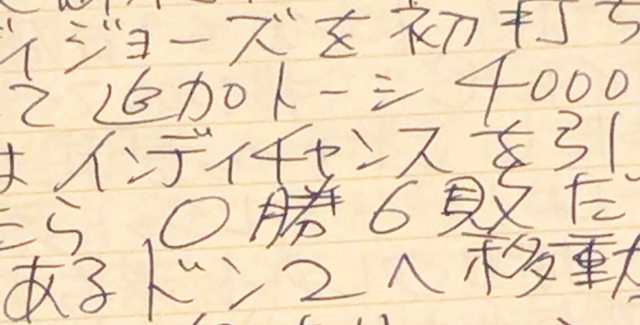 ィジョーズを初打ち
て追加トーシ4000
はインディチャンスを引
たら0勝6敗だ
あるドン2へ移動